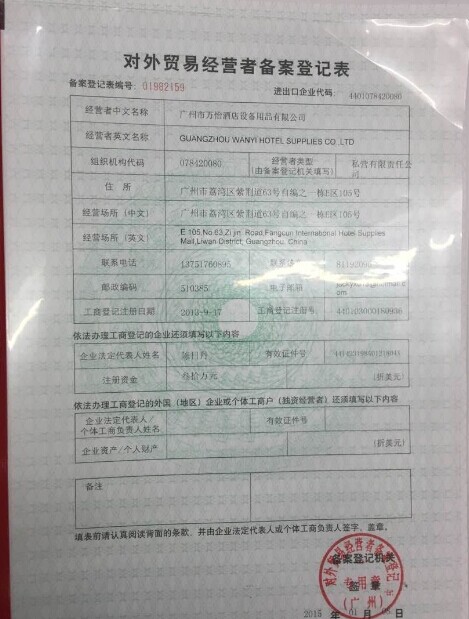 对外贸易经营者备案登记表
备案登记表编号: 01982159
进出口企业代码: 4401078420080
经营者中文名称 广州市万怡酒店设备用品有限公司
经营者英文名称 GUANGZHOU WANYI HOTEL SUPPLIES CO.,LTD
组织机构代码 078420080 经营者类型 (由备案登记机关填写) 私营有限责任公司
住 所 广州市荔湾区紫荆道63号自编之一栋E区105号
经营场所(中文) 广州市荔湾区紫荆道63号自编之一栋E区105号
经营场所(英文) E 105,No.63,Zi jin Road,Fangcun International Hotel Supplies
Mall,Liwan District, Guangzhou, China
联系电话 13751760895
邮政编码 510385 电子邮箱
工商登记注册日期 2013-9-17 工商登记注册号
依法办理工商登记的企业还须填写以下内容
企业法定代表人姓名 有效证件号
注册资金 叁拾万元 (折美元)
依法办理工商登记的外国(地区)企业或个体工商户(独资经营者)还须填写以下内容
企业法定代表人/
个体工商负责人姓名 有效证件号
企业资产/个人财产 (折美元)
备注
填表前请认真阅读背面的条款,并由企业法定代表人或个体工商负责人签字、盖章。
备案登记机关
签 章
专用章
(广州)
2015 年 01